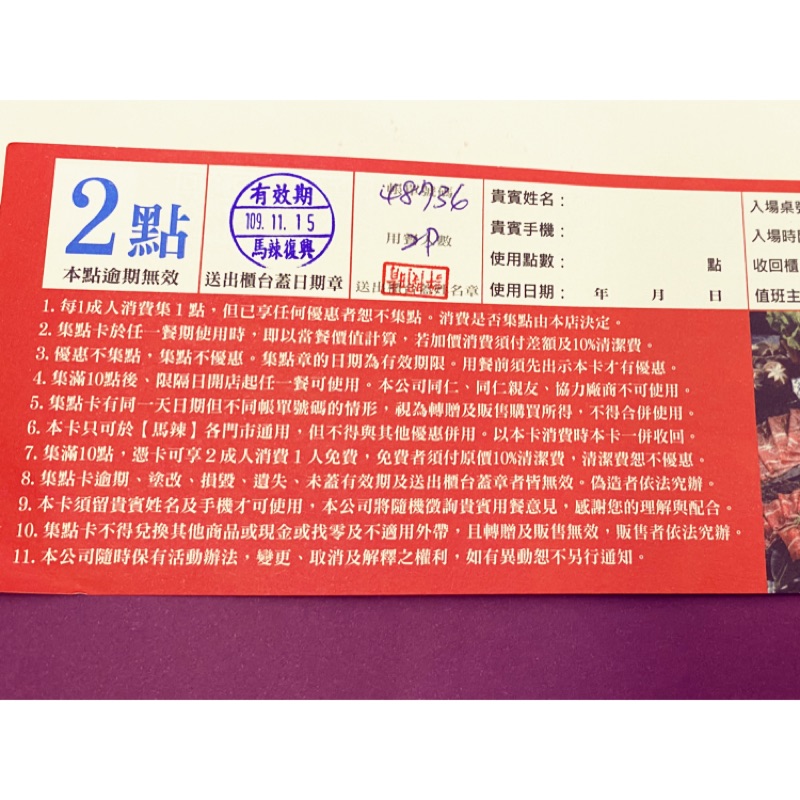 2點
本點逾期無效
有效期
109.11.15
馬辣復興
送出櫃台蓋日期章
用對人數
2P
貴賓姓名：
貴賓手機：
使用點數： 點
使用日期： 年 月 日
入場桌
入場時
收回櫃
值班主
1. 每1成人消費集1點，但已享任何優惠者恕不集點。消費是否集點由本店決定。
2. 集點卡於任一餐期使用時，即以當餐價值計算，若加價消費須付差額及10%清潔費。
3. 優惠不集點，集點不優惠。集點章的日期為有效期限。用餐前須先出示本卡才有優惠。
4. 集滿10點後、限隔日開店起任一餐可使用。本公司同仁、同仁親友、協力廠商不可使用。
5. 集點卡有同一天日期但不同帳單號碼的情形，視為轉贈及販售購買所得，不得合併使用。
6. 本卡只可於【馬辣】各門市通用，但不得與其他優惠併用。以本卡消費時本卡一併收回。
7. 集滿10點，憑卡可享2成人消費1人免費，免費者須付原價10%清潔費，清潔費恕不優惠。
8. 集點卡逾期、塗改、損毀、遺失、未蓋有效期及送出櫃台蓋章者皆無效。偽造者依法究辦。
9. 本卡須留貴賓姓名及手機才可使用，本公司將隨機徵詢貴賓用餐意見，感謝您的理解與配合。
10. 集點卡不得兌換其他商品或現金或找零及不適用外帶，且轉贈及販售無效，販售者依法究辦。
11. 本公司隨時保有活動辦法，變更、取消及解釋之權利，如有異動恕不另行通知。